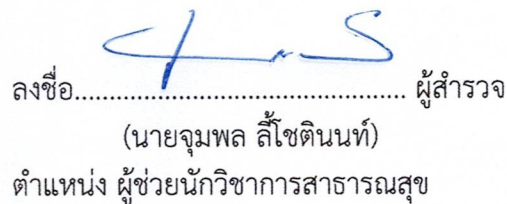 ลงชื่อ................................................ ผู้สำรวจ
(นายจุมพล ลี้โชตินนท์)
ตำแหน่ง ผู้ช่วยนักวิชาการสาธารณสุข